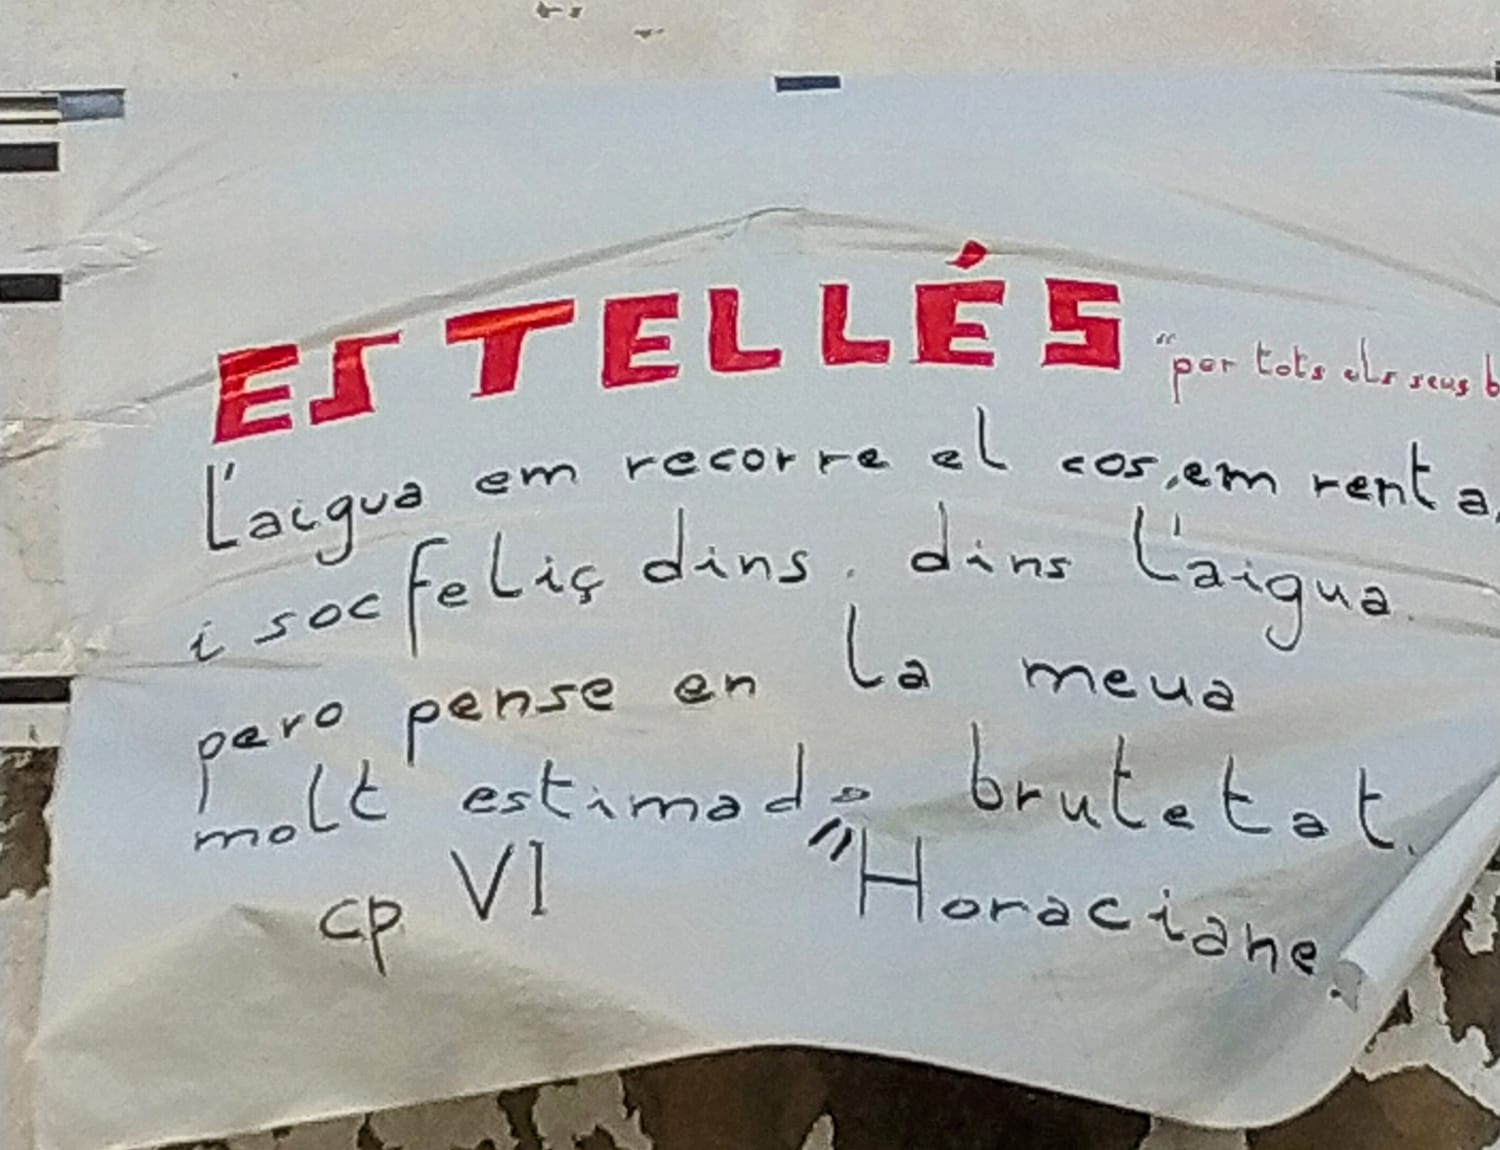 ESTELLÉS "per tots els seus
L'aigua em recorre el cos, em renta,
i soc feliç dins. dins l'aigua.
pero pense en la meua
molt estimada brutetat.
cp VI "Horaciane